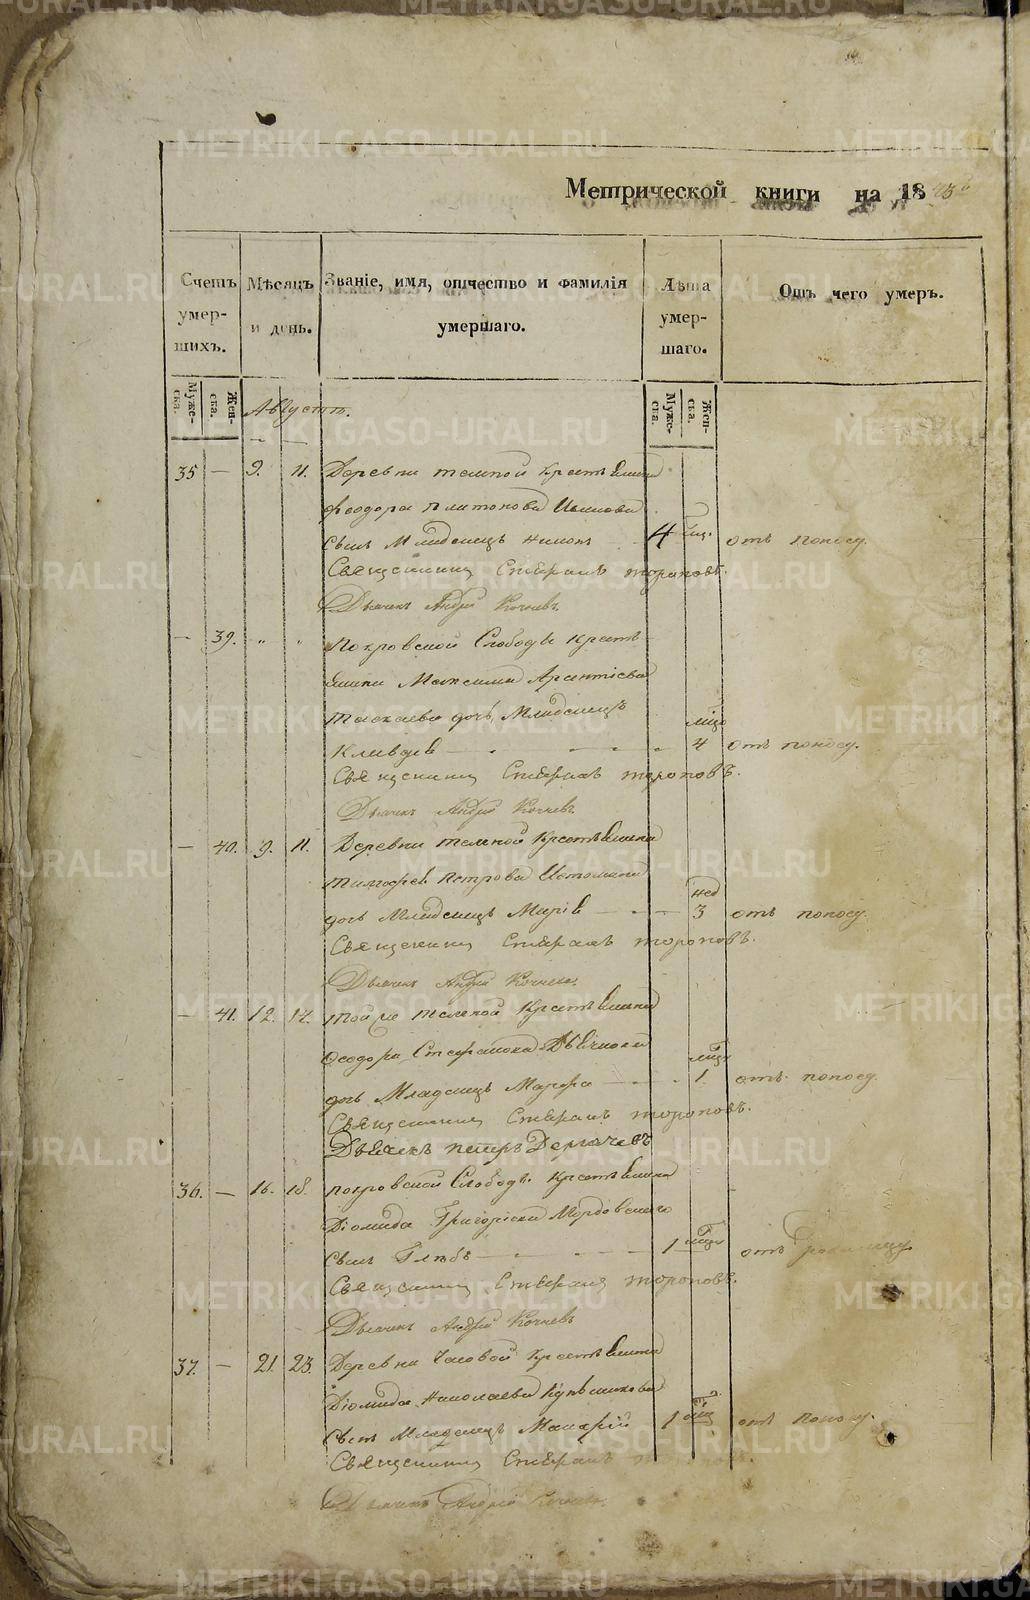 Метрической книги на 1843
Счетъ умершихъ.
Мѣсяцъ и день.
Званіе, имя, отчество и фамилія умершаго.
Лѣта умершаго.
Отъ чего умеръ.
Мужеска. Женска.
Мужеска. Женска.
Августъ.
35 — 9. 11. Деревни темной Крестьянина
Феодора Платонова
сынъ Младенецъ 4 отъ поносу.
Священникъ Стефанъ тороповъ.
Дьячекъ Андрей Кочневъ
— 39. " " Покровской Слободы Крестьянина
Максима
дочь Младенецъ
Клавдія 4 отъ поносу.
Священникъ Стефанъ тороповъ.
Дьячекъ Андрей Кочневъ
— 40. 9. 11. Деревни темной Крестьянина
Тимофея Петрова Истомина
дочь Младенецъ Марія нед 3 отъ поносу.
Священникъ Стефанъ тороповъ.
Дьячекъ Андрей Кочневъ.
— 41. 12. 14. той же темной Крестьянина
Ѳеодора Стефанова
дочь Младенецъ Марфа 1. отъ поносу.
Священникъ Стефанъ тороповъ.
Дьячекъ петръ Дергачевъ
36. — 16. 18. покровской Слободы Крестьянина
Діомида Григоріева Мордовскаго
сынъ Глѣбъ 1 отъ родимцу
Священникъ Стефанъ тороповъ.
Дьячекъ Андрей Кочневъ
37. — 21. 23. Деревни Часовой Крестьянина
Діомида Николаева
сынъ Младенецъ Макарій 1 отъ поносу.
Священникъ Стефанъ
Дьячекъ Андрей Кочневъ
METRIKI.GASO-URAL.RU